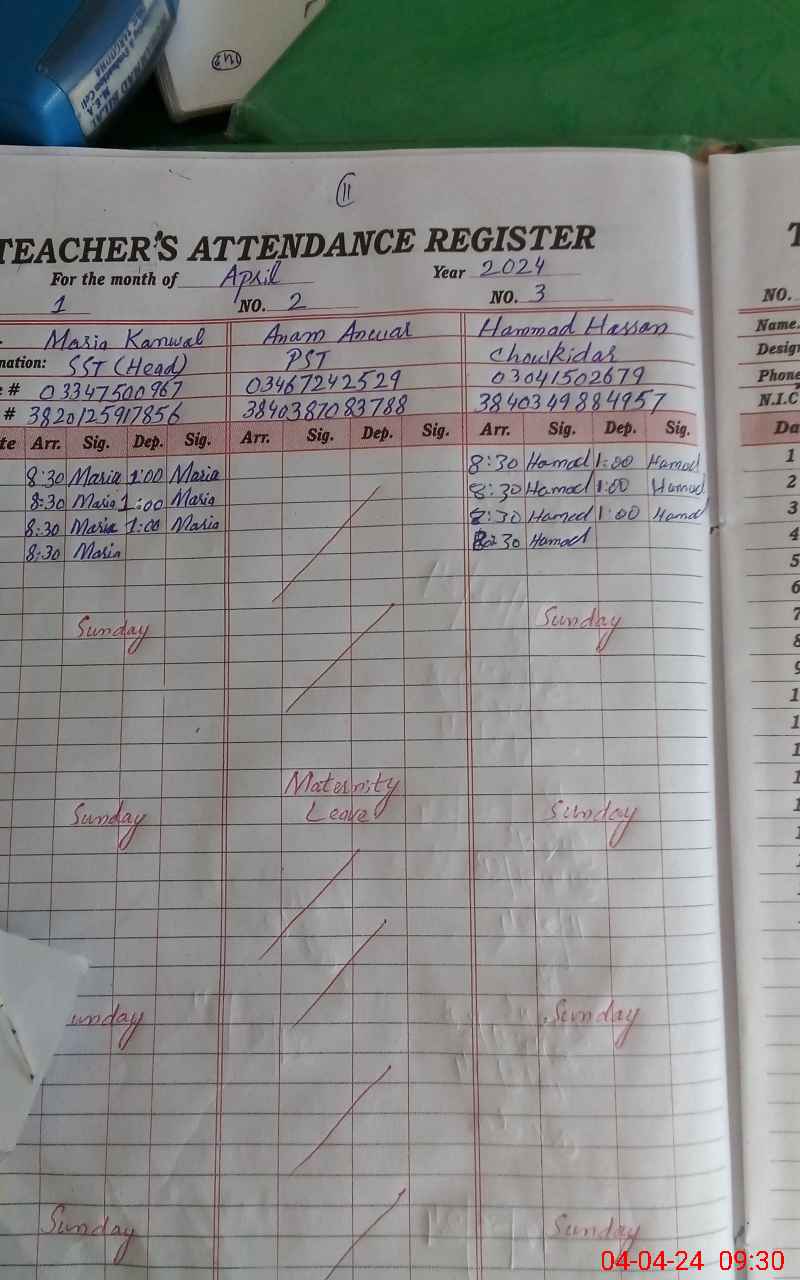 142
11
TEACHER'S ATTENDANCE REGISTER
For the month of April Year 2024
1 NO. 2 NO. 3 NO.
Maria Kanwal Anam Anwar Hammad Hassan Name.
nation: SST (Head) PST Chowkidar Design
e # 03347500967 03467242529 03041502679 Phone
# 3820125917856 3840387083788 3840349884957 N.I.C
te Arr. Sig. Dep. Sig. Arr. Sig. Dep. Sig. Arr. Sig. Dep. Sig. Da
8:30 Maria 1:00 Maria 8:30 Hamad 1:00 Hamad 1
8:30 Maria 1:00 Maria 8:30 Hamad 1:00 Hamad 2
8:30 Maria 1:00 Maria 8:30 Hamad 1:00 Hamad 3
8:30 Maria 8:30 Hamad 4
5
6
Sunday Sunday 7
8
9
1
1
1
Maternity
1
Sunday Leave Sunday 1
1
1
1
unday Sunday
Sunday Sunday
04-04-24 09:30